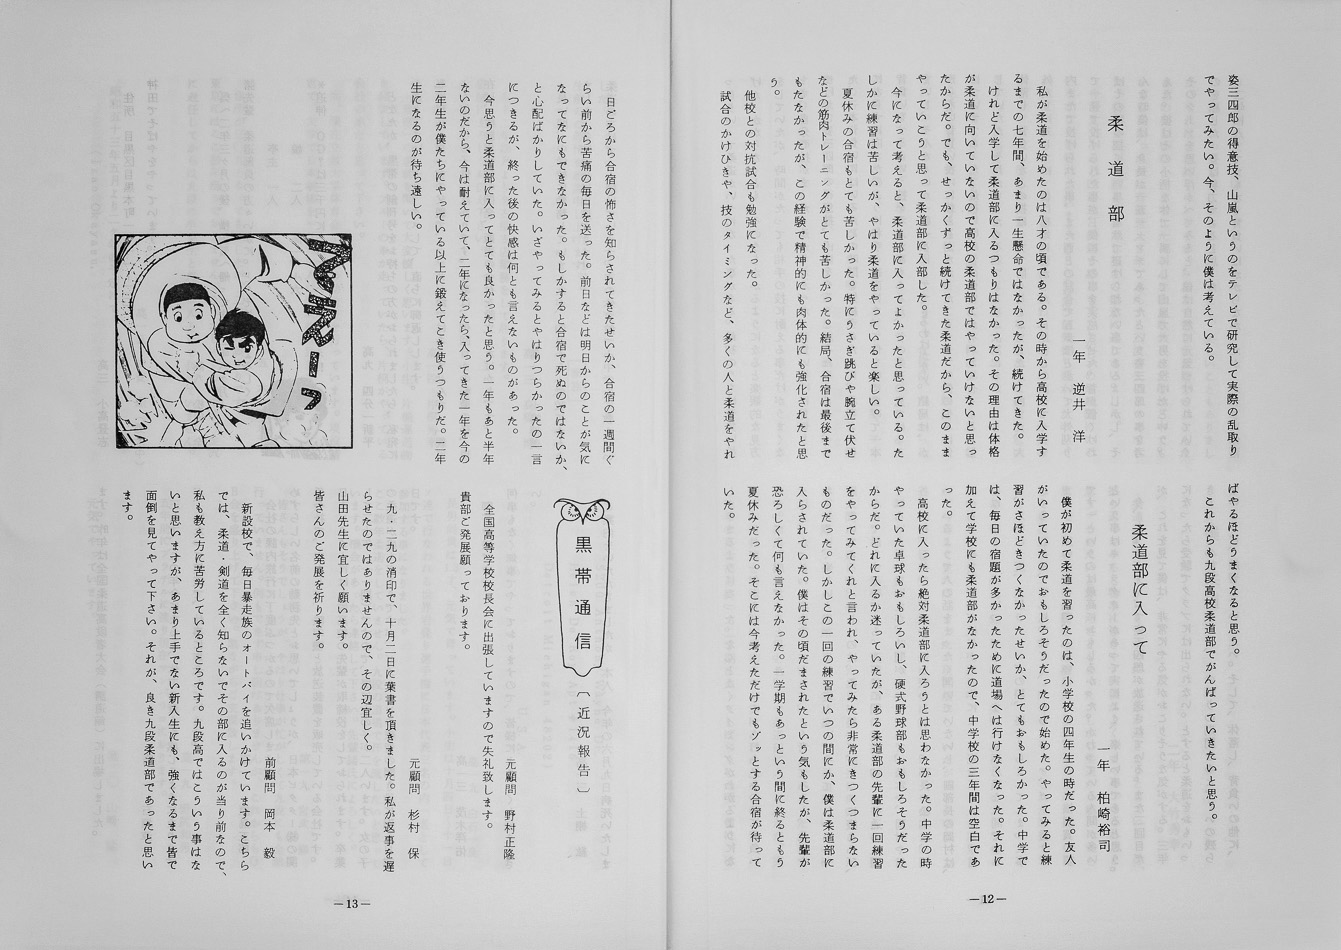 姿三四郎の得意技、山嵐というのをテレビで研究して実際の乱取り
でやってみたい。今、そのように僕は考えている。
柔道部
一年 逆井 洋
私が柔道を始めたのは八才の頃である。その時から高校に入学す
るまでの七年間、あまり一生懸命ではなかったが、続けてきた。
けれど入学して柔道部に入るつもりはなかった。その理由は体格
が柔道に向いていないので高校の柔道部ではやっていけないと思っ
たからだ。でも、せっかくずっと続けてきた柔道だから、このまま
やっていこうと思って柔道部に入部した。
今になって考えると、柔道部に入ってよかったと思っている。た
しかに練習は苦しいが、やはり柔道をやっていると楽しい。
夏休みの合宿もとても苦しかった。特にうさぎ跳びや腕立て伏せ
などの筋肉トレーニングがとても苦しかった。結局、合宿は最後まで
もたなかったが、この経験で精神的にも肉体的にも強化されたと思
う。
他校との対抗試合も勉強になった。
試合のかけひきや、技のタイミングなど、多くの人と柔道をやれ
ばやるほどうまくなると思う。
これからも九段高校柔道部でがんばっていきたいと思う。
柔道部に入って
一年 柏崎裕司
僕が初めて柔道を習ったのは、小学校の四年生の時だった。友人
がいっていたのでおもしろそうだったので始めた。やってみると練
習がさほどきつくなかったせいか、とてもおもしろかった。中学で
は、毎日の宿題が多かったために道場へは行けなくなった。それに
加えて学校にも柔道部がなかったので、中学校の三年間は空白であ
った。
高校に入ったら絶対柔道部に入ろうとは思わなかった。中学の時
やっていた卓球もおもしろいし、硬式野球部もおもしろそうだった
からだ。どれに入るか迷っていたが、ある柔道部の先輩に一回練習
をやってみてくれと言われ、やってみたら非常にきつくつまらない
ものだった。しかしこの一回の練習でいつの間にか、僕は柔道部に
入らされていた。僕はその頃だまされたという気もしたが、先輩が
恐ろしくて何も言えなかった。一学期もあっという間に終るともう
夏休みだった。そこには今考えただけでもゾッとする合宿が待って
いた。
—12—
日ごろから合宿の怖さを知らされてきたせいか、合宿の一週間ぐ
らい前から苦痛の毎日を送った。前日などは明日からのことが気に
なってなにもできなかった。もしかすると合宿で死ぬのではないか、
と心配ばかりしていた。いざやってみるとやはりつらかったの一言
につきるが、終った後の快感は何とも言えないものがあった。
今思うと柔道部に入ってとても良かったと思う。一年もあと半年
ないのだから、今は耐えていて、二年になったら、入ってきた一年を今の
二年生が僕たちにやっている以上に鍛えてこき使うつもりだ。二年
生になるのが待ち遠しい。
黒帯通信
〔近況報告〕
元顧問 野村正隆
全国高等学校校長会に出張していますので失礼致します。
貴部ご発展願っております。
元顧問 杉村 保
九・二九の消印で、十月二日に葉書を頂きました。私が返事を遅
らせたのではありませんので、その辺宜しく。
山田先生に宜しく願います。
皆さんのご発展を祈ります。
前顧問 岡本 毅
新設校で、毎日暴走族のオートバイを追いかけています。こちら
では、柔道・剣道を全く知らないでその部に入るのが当り前なので、
私も教え方に苦労しているところです。九段高ではこういう事はな
いと思いますが、あまり上手でない新入生にも、強くなるまで皆で
面倒を見てやって下さい。それが、良き九段柔道部であったと思い
ます。
—13—